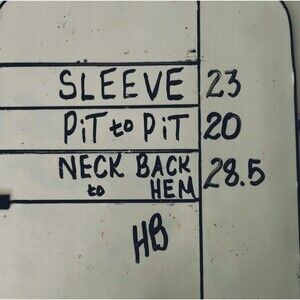 SLEEVE 23
PiT to PiT 20
NECK BACK
to HEM 28.5
HB